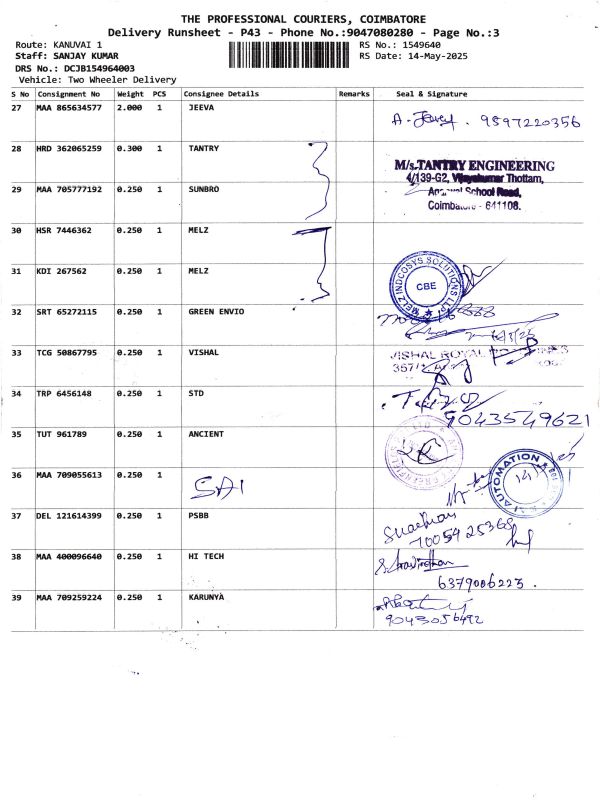 THE PROFESSIONAL COURIERS, COIMBATORE
Delivery Runsheet - P43 - Phone No.:9047080280 - Page No.:3
Route: KANUVAI 1
RS No.: 1549640
Staff: SANJAY KUMAR
RS Date: 14-May-2025
DRS No.: DCJB154964003
Vehicle: Two Wheeler Delivery
S No Consignment No Weight PCS Consignee Details Remarks Seal & Signature
27 MAA 865634577 2.000 1 JEEVA
9597220356
28 HRD 362065259 0.300 1 TANTRY
M/s.TANTRY ENGINEERING
4/139-G2, Vijayakumar Thottam,
School Road,
Coimbatore - 641108.
29 MAA 705777192 0.250 1 SUNBRO
30 HSR 7446362 0.250 1 MELZ
31 KDI 267562 0.250 1 MELZ
MELZ INDCOSYS SOLUTIONS LLP
CBE
32 SRT 65272115 0.250 1 GREEN ENVIO
33 TCG 50867795 0.250 1 VISHAL
VISHAL ROYAL
34 TRP 6456148 0.250 1 STD
9043549621
35 TUT 961789 0.250 1 ANCIENT
36 MAA 709055613 0.250 1 SAI
AUTOMATION
37 DEL 121614399 0.250 1 PSBB
7005925368
38 MAA 400096640 0.250 1 HI TECH
6379086223.
39 MAA 709259224 0.250 1 KARUNYA
9043056492